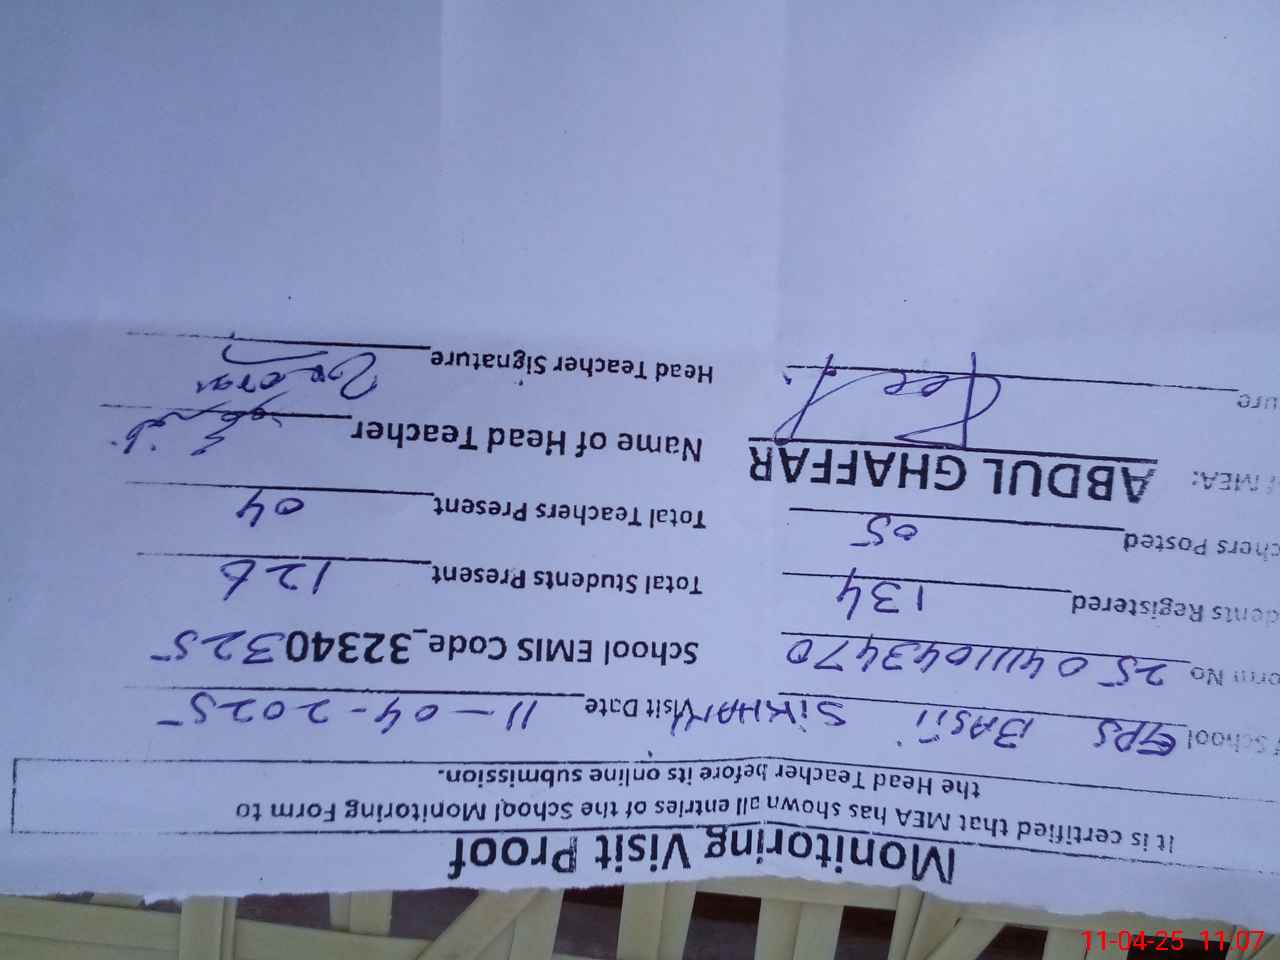 Monitoring Visit Proof
It is certified that MEA has shown all entries of the School Monitoring Form to
the Head Teacher before its online submission.
School GPS BASTI SIKHANI Visit Date 11-04-2025
orm No 2504111043470 School EMIS Code_32340325
dents Registered 134 Total Students Present 126
chers Posted 05 Total Teachers Present 04
MEA: ABDUL GHAFFAR Name of Head Teacher
ure Head Teacher Signature
11-04-25 11:07